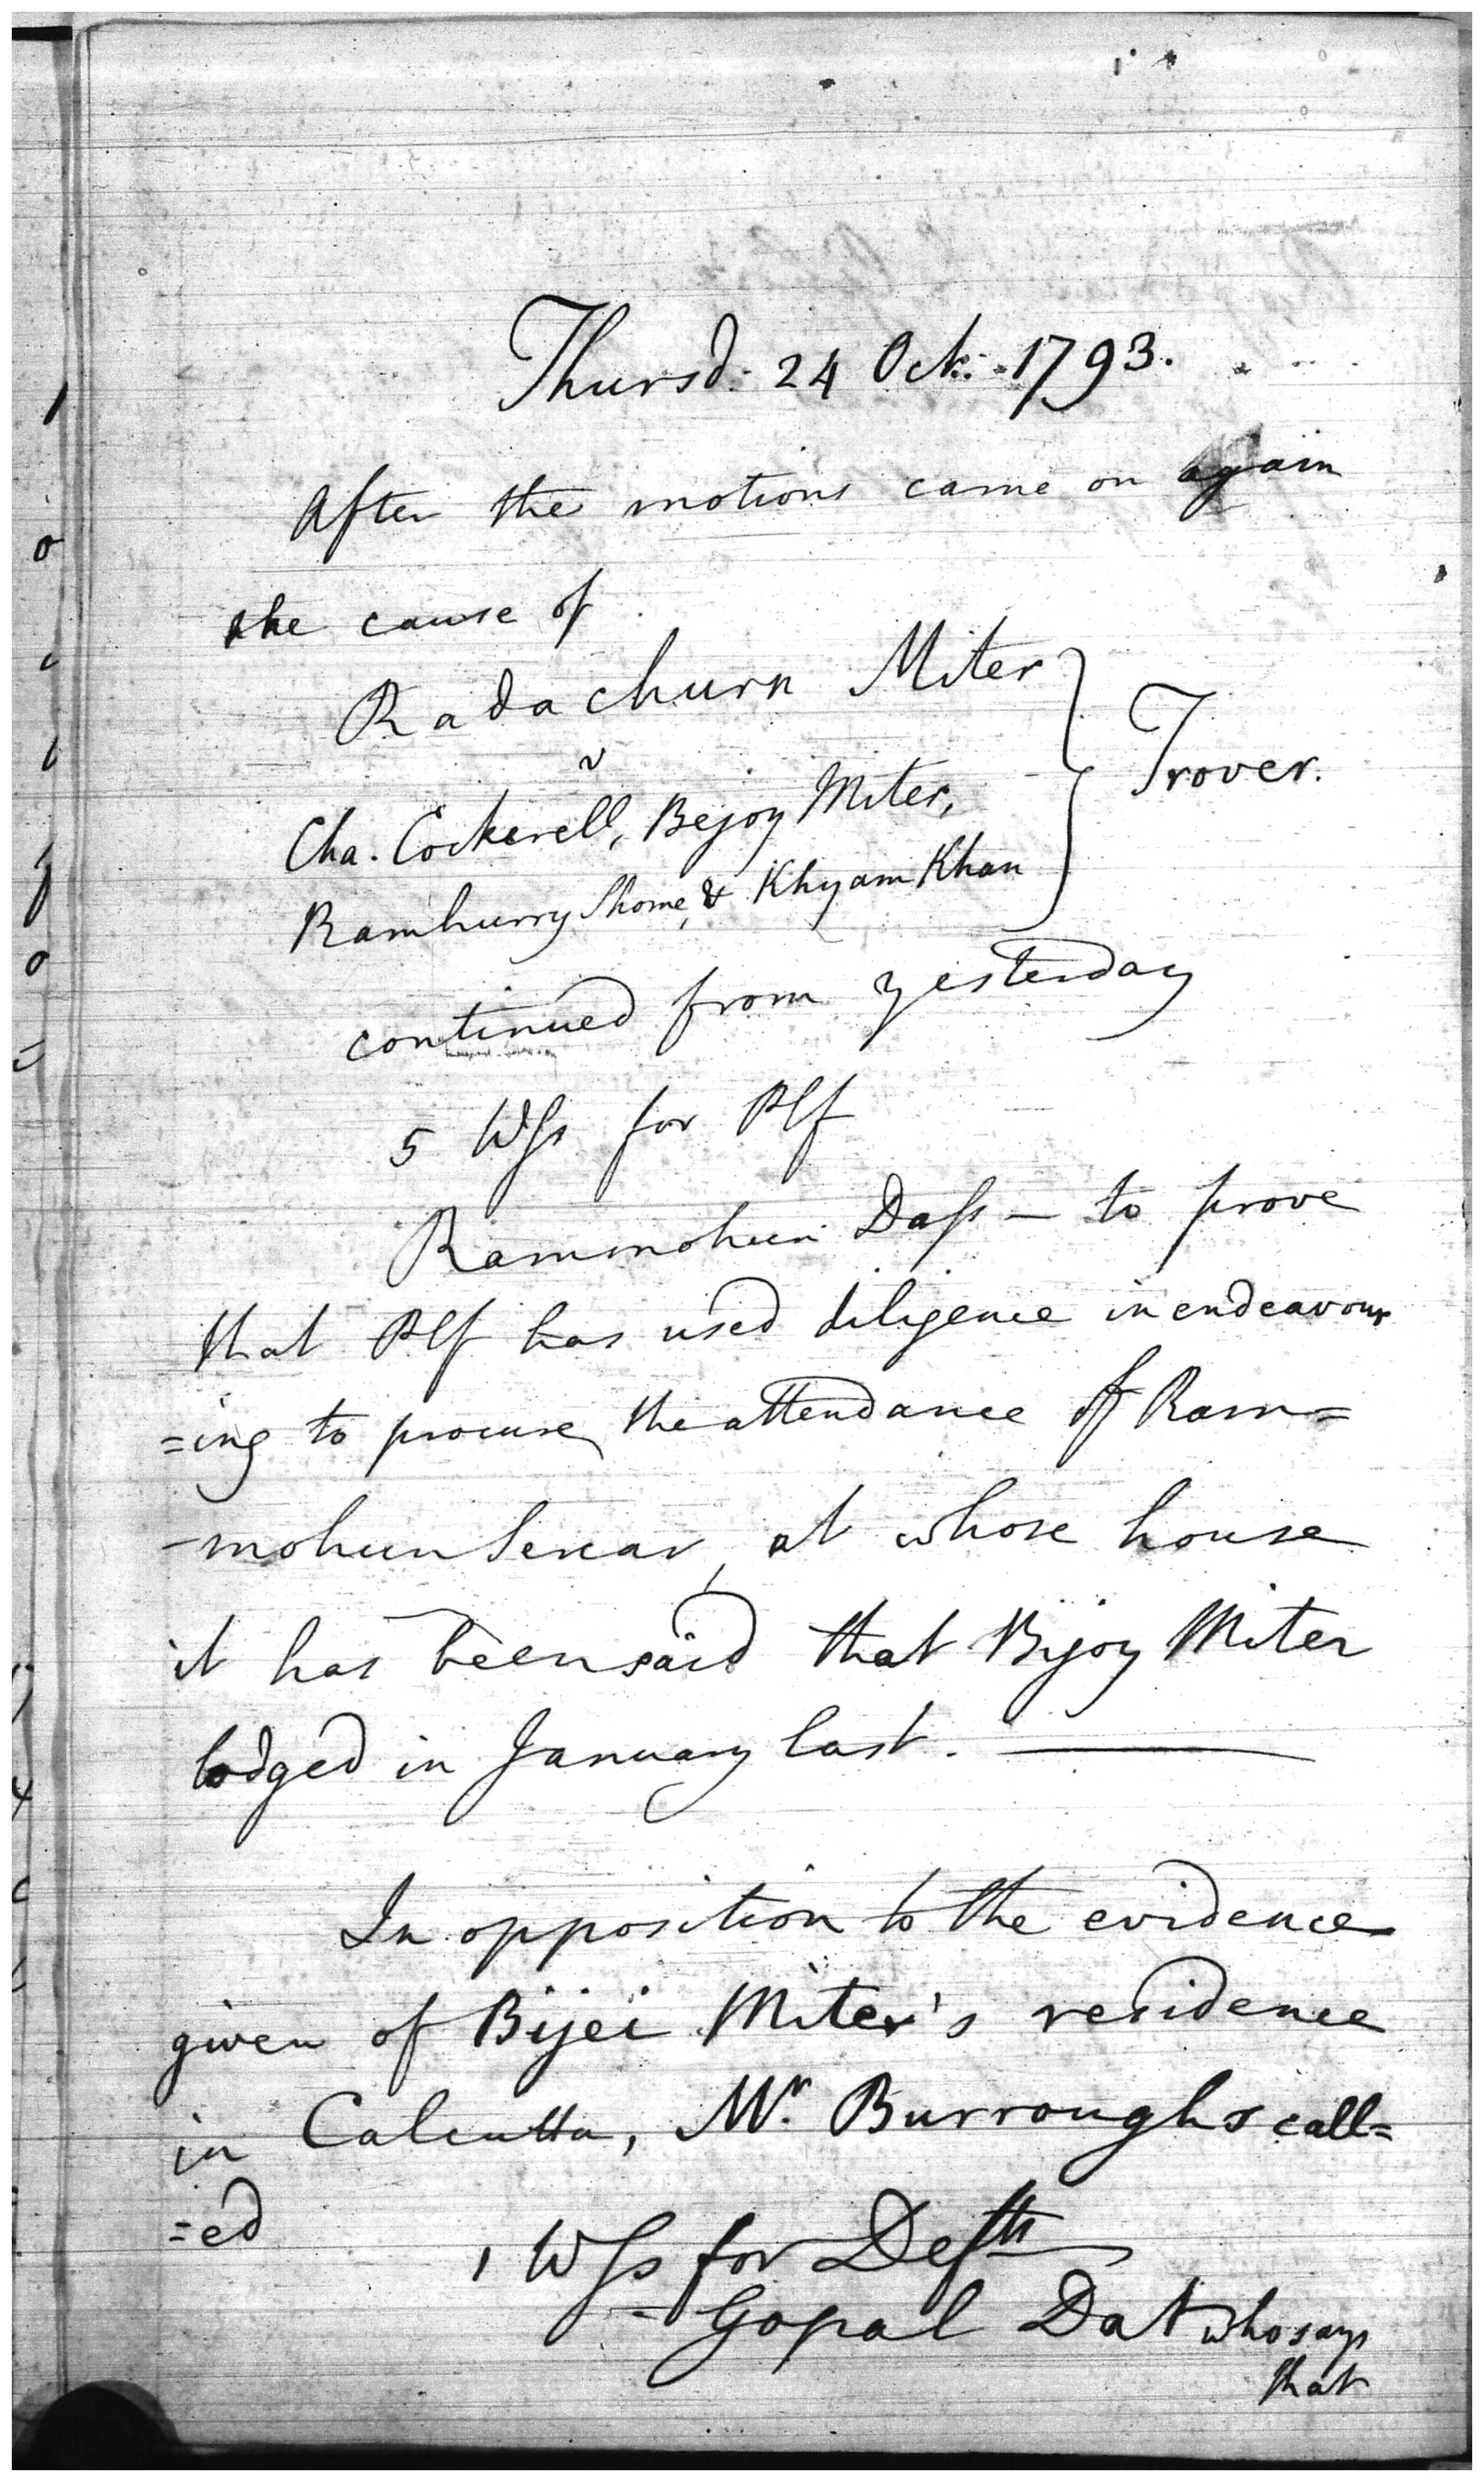 Thursd: 24 Oct: 1793.
After the motions came on again
the cause of
Radachurn Miter
v
Cha. Cockerell, Bejoy Miter,
Ramhurry Shome, & Khyam Khan
Trover.
continued from yesterday
5 Wss for Plf
Rammohun Dass — to prove
that Plf has used diligence in endeavour
=ing to procure the attendance of Ram=
-mohun Sercar, at whose house
it has been said that Bijoy Miter
lodged in January last. —
In opposition to the evidence
given of Bijei Miter's residence
in Calcutta, Mr. Burroughs call=
=ed
1 Wss for Defts
- Gopal Dat who says
that